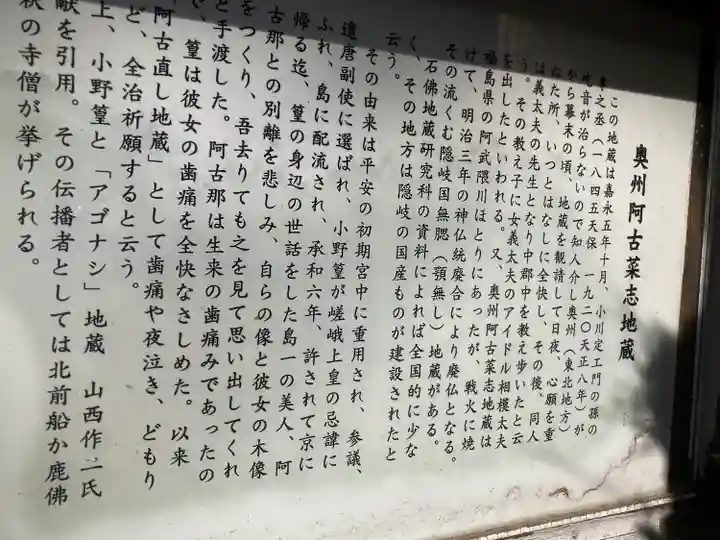 奥州阿古菜志地蔵
この地蔵は嘉永五年十月、小川定エ門の孫の
幸之丞（一八四五天保―一九二〇大正八年）が
吃音が治らないので知人介し奥州（東北地方）
から幕末の頃、地蔵を観請して日夜、心願を重
ねた所、いつとはなしに全快し、その後、同人
は義太夫の先生となり中郡中を教え歩いたと云
う。その教え子に女義太夫のアイドル相模太夫
を出したといわれる。又、奥州阿古菜志地蔵は
福島県の阿武隈川ほとりにあったが、戦火に焼
けて、明治三年の神仏統廃合により廃仏となる。
その流くむ隠岐国無腮（顎無し）地蔵がある。
石佛地蔵研究科の資料によれば全国的に少な
く、その地方は隠岐の国産ものが建設されたと
云う。
その由来は平安の初期宮中に重用され、参議、
遣唐副使に選ばれ、小野篁が嵯峨上皇の忌諱に
ふれ、島に配流され、承和六年、許されて京に
帰る迄、篁の身辺の世話をした島一の美人、阿
古那との別離を悲しみ、自らの像と彼女の木像
をつくり、吾去りても之を見て思い出してくれ
と手渡した。阿古那は生来の歯痛みであったの
で、篁は彼女の歯痛を全快なさしめた。以来
阿古直し地蔵」として歯痛や夜泣き、どもり
ど、全治祈願すると云う。
上、小野篁と「アゴナシ」地蔵　山西作二氏
献を引用。その伝播者としては北前船か鹿佛
秋の寺僧が挙げられる。